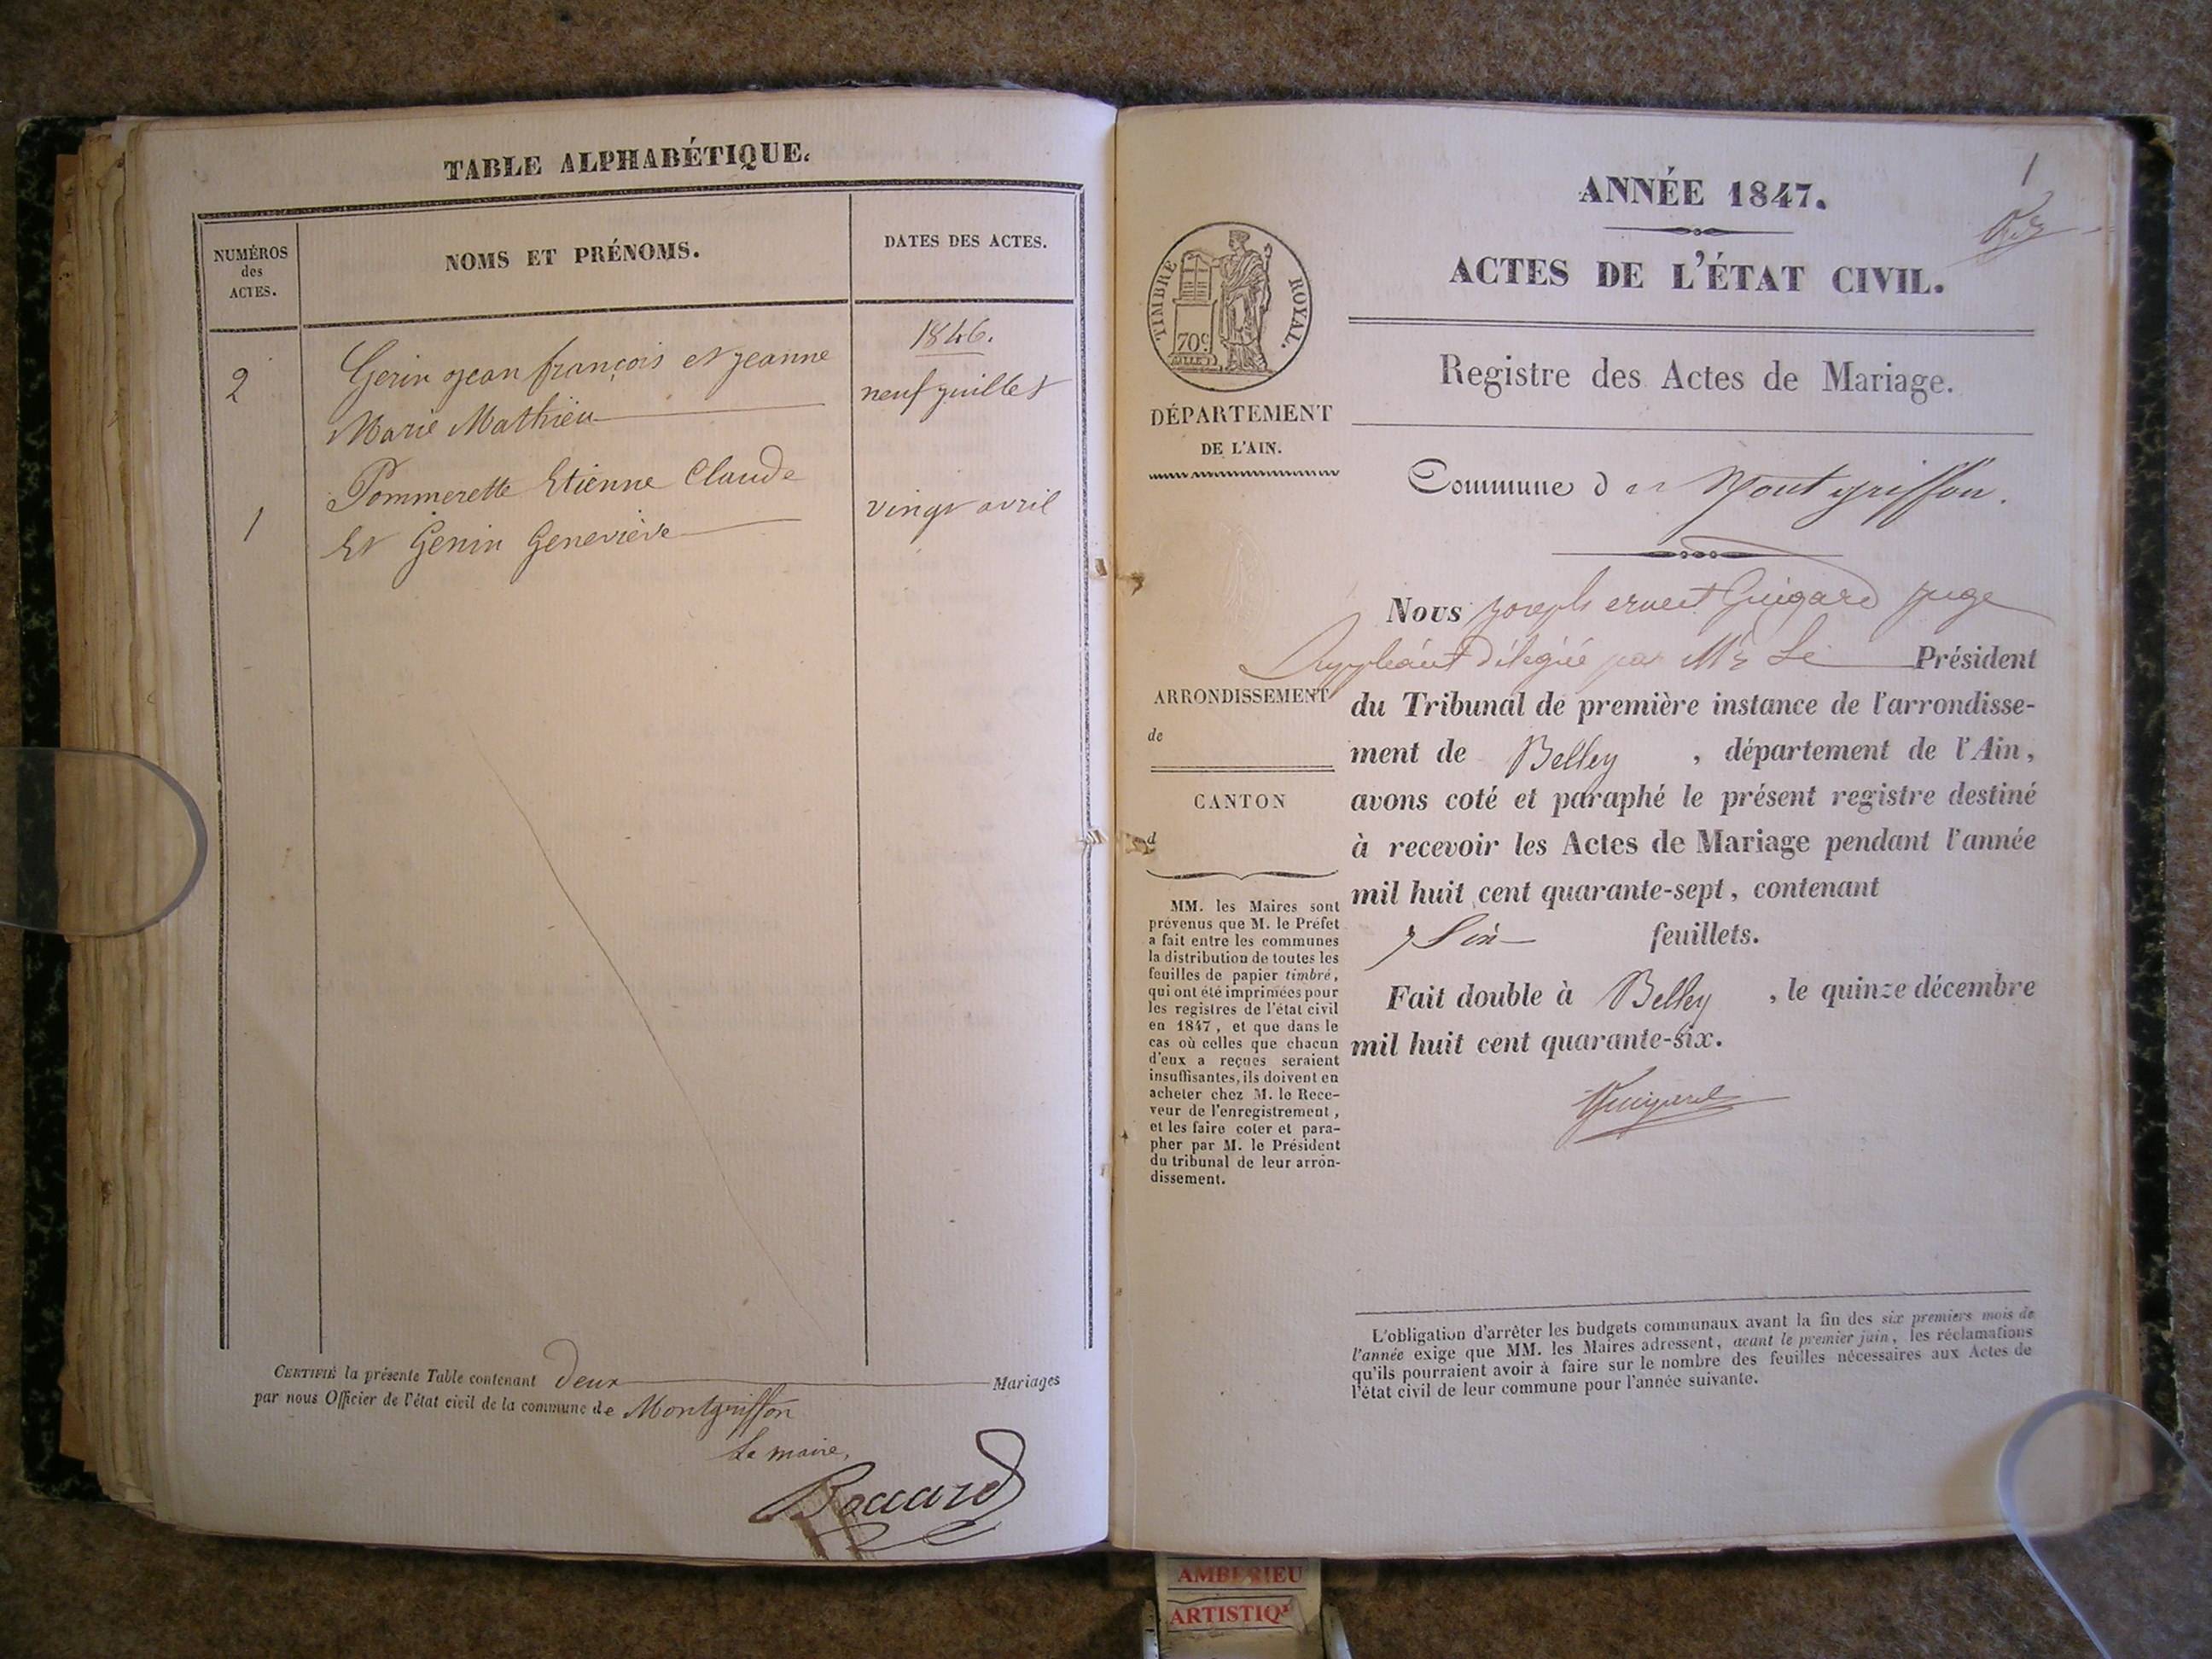 TABLE ALPHABÉTIQUE.
NUMÉROS
des
ACTES.
NOMS ET PRÉNOMS.
DATES DES ACTES.
1846.
2
Gerin jean françois et jeanne
neuf juillet
Marie Mathieu
Pommerette Etienne Claude
vingt avril
1
Et Genin Geneviève
CERTIFIÉ la présente Table contenant deux Mariages
par nous Officier de l'état civil de la commune de Montgriffon
Le maire,
Boccard
1
ANNÉE 1847.
ACTES DE L'ÉTAT CIVIL.
TIMBRE ROYAL.
70c
Registre des Actes de Mariage.
DÉPARTEMENT
DE L'AIN.
Commune de Montgriffon.
Nous joseph ernest Guigard juge
Suppléant délégué par Mr Le Président
ARRONDISSEMENT
de
du Tribunal de première instance de l'arrondisse-
ment de Belley, département de l'Ain,
CANTON
d
avons coté et paraphé le présent registre destiné
à recevoir les Actes de Mariage pendant l'année
mil huit cent quarante-sept, contenant
feuillets.
Fait double à Belley, le quinze décembre
mil huit cent quarante-six.
Guigard
MM. les Maires sont
prévenus que M. le Préfet
a fait entre les communes
la distribution de toutes les
feuilles de papier timbré,
qui ont été imprimées pour
les registres de l'état civil
en 1847, et que dans le
cas où celles que chacun
d'eux a reçues seraient
insuffisantes, ils doivent en
acheter chez M. le Rece-
veur de l'enregistrement,
et les faire coter et para-
pher par M. le Président
du tribunal de leur arron-
dissement.
L'obligation d'arrêter les budgets communaux avant la fin des six premiers mois de
l'année exige que MM. les Maires adressent, avant le premier juin, les réclamations
qu'ils pourraient avoir à faire sur le nombre des feuilles nécessaires aux Actes de
l'état civil de leur commune pour l'année suivante.
AMBERIEU
ARTISTIQ